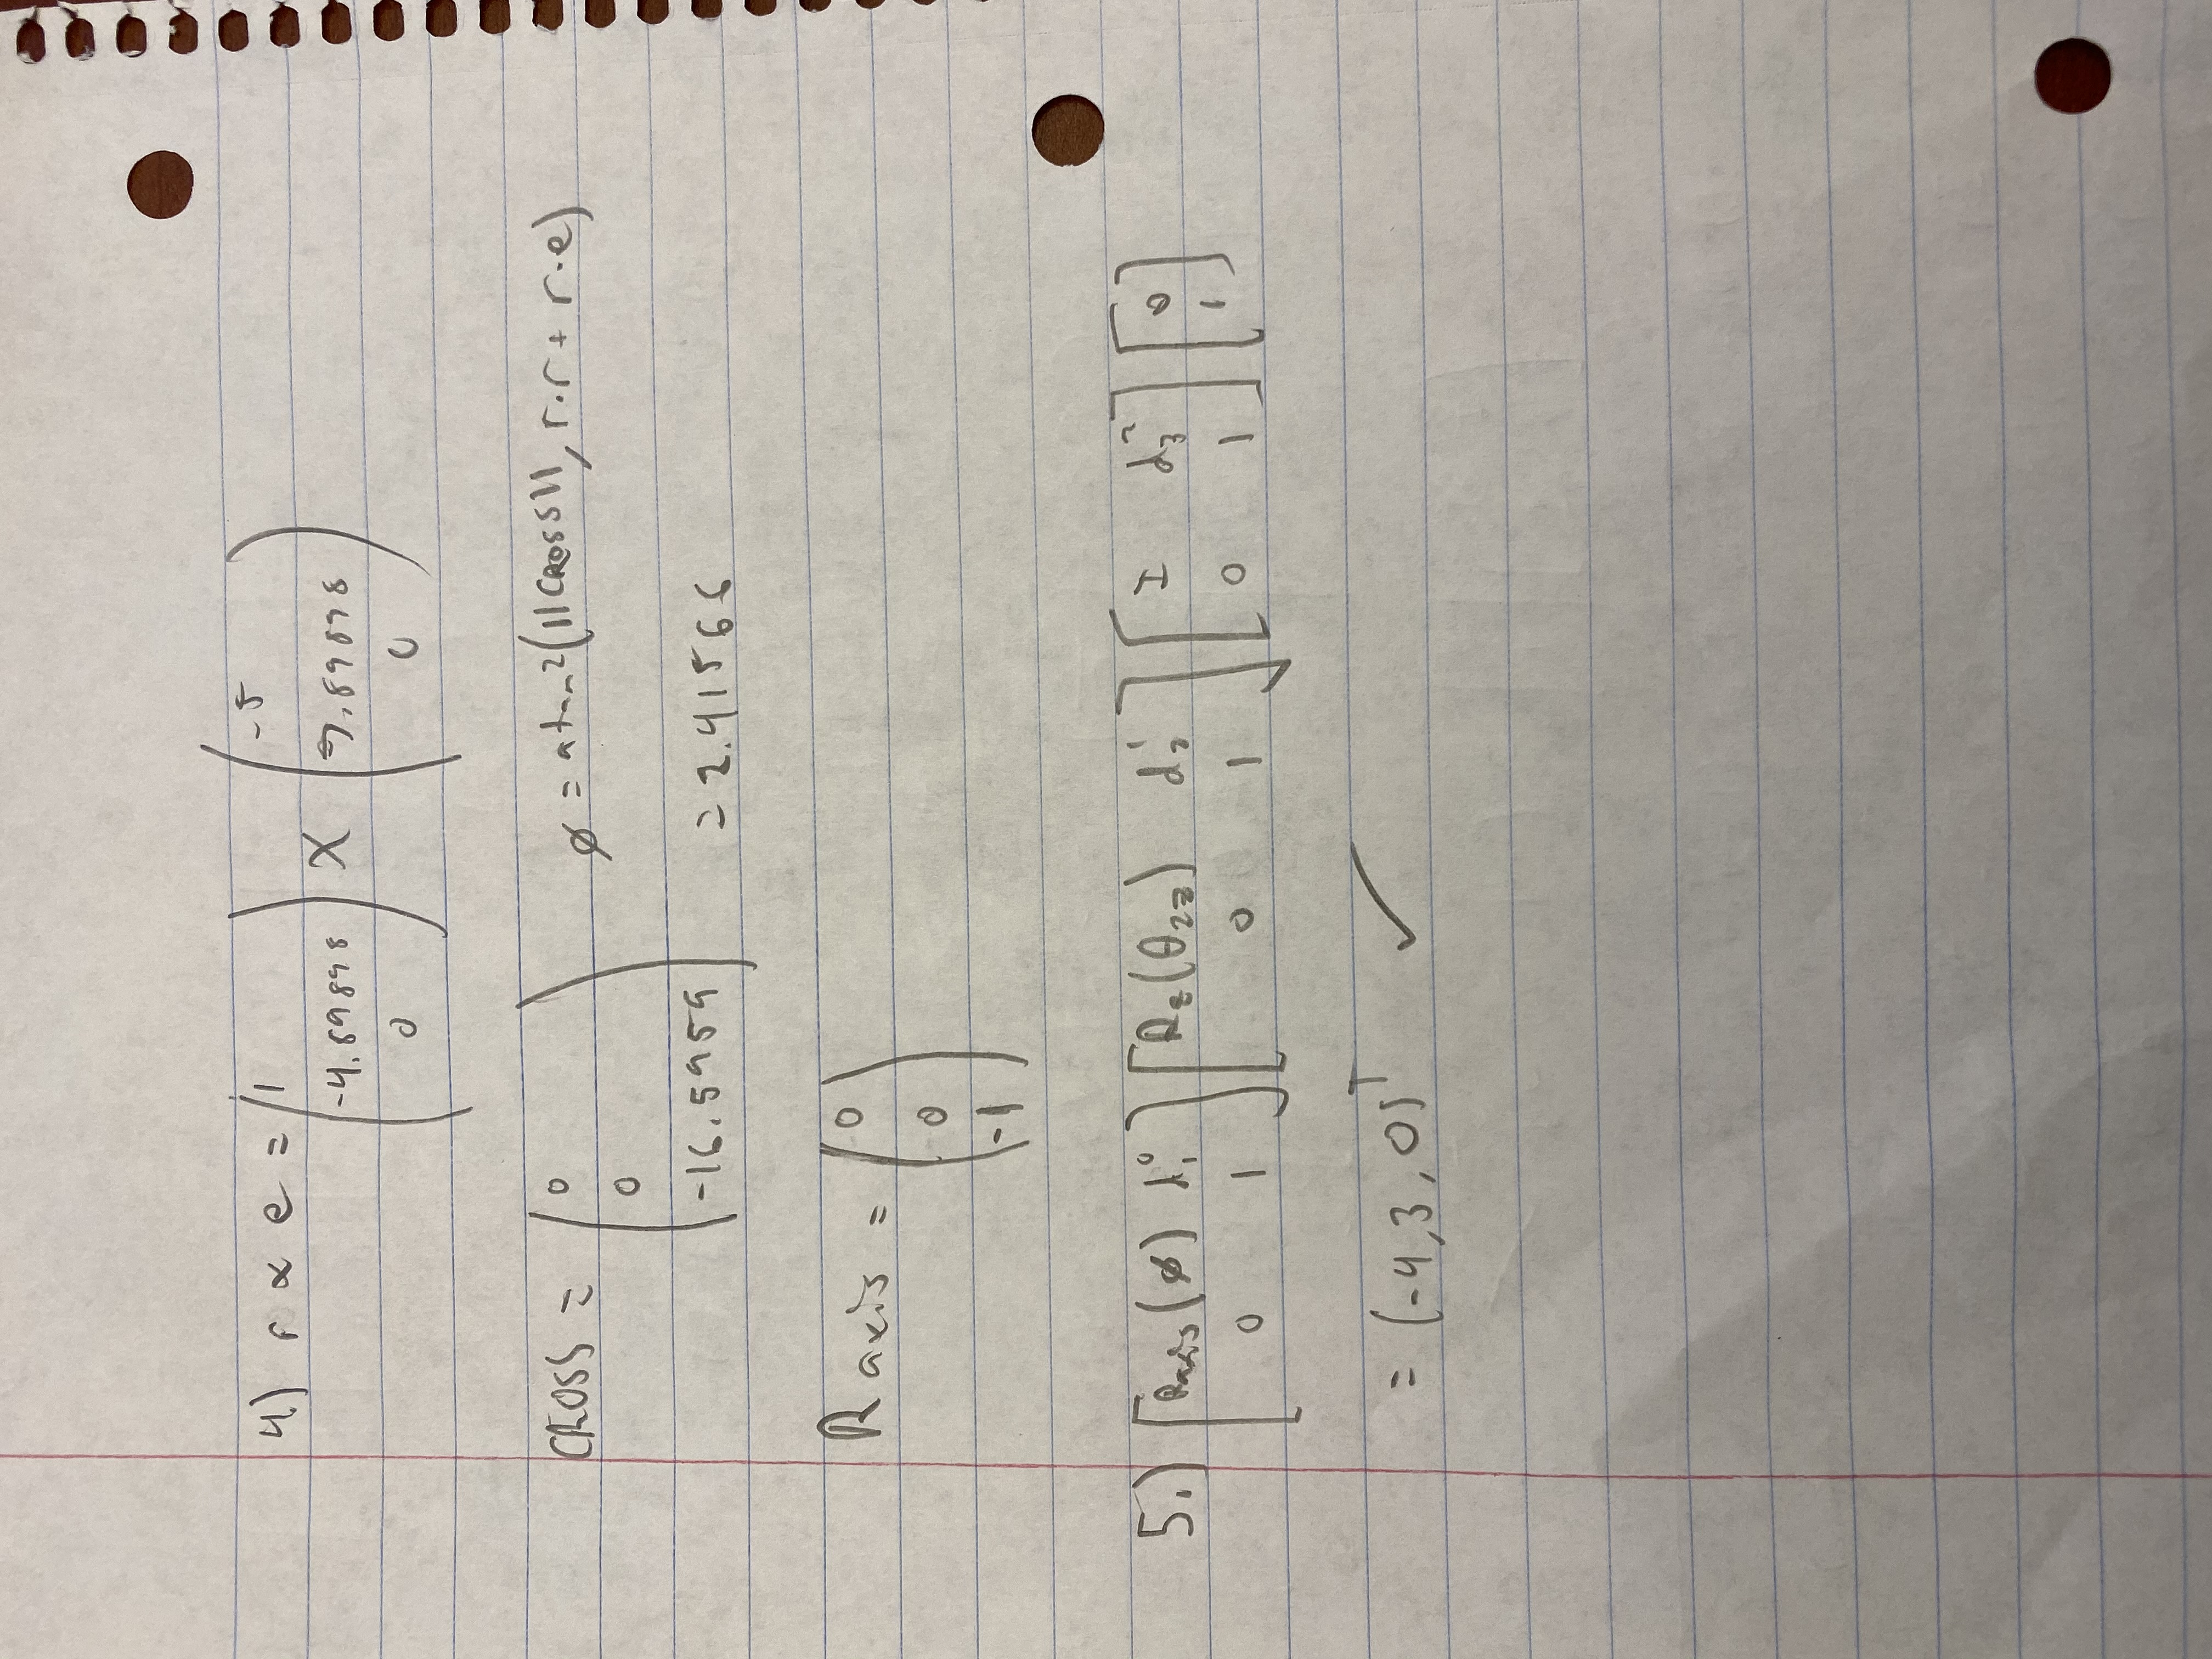 4) r × e = (1 -4.89898 0) × (-5 7.89898 0)
CROSS = (0 0 -16.5959) ø = atan2(||CROSS||, r·r + r·e)
= 2.41566
R axis = (0 0 -1)
5.) [Raxis(ø) d₁⁰ 0 1] [Rz(θ2z) d₂¹ 0 1] [I d₃² 0 1] [0 1]
= (-4,3,0)ᵀ ✓